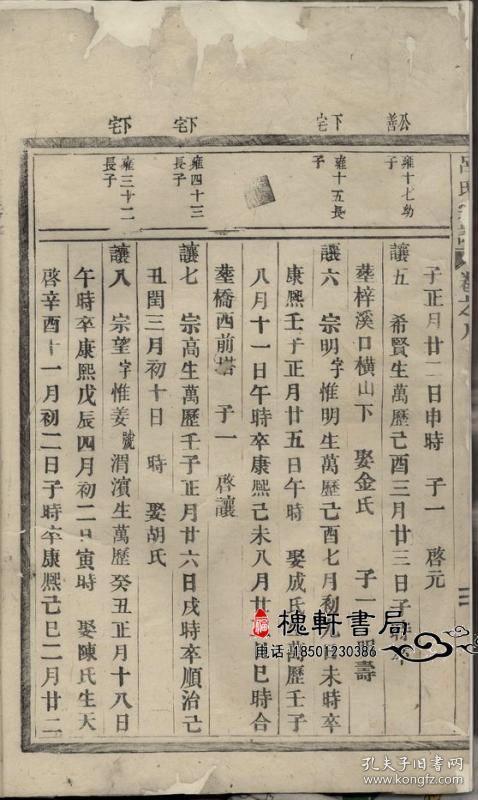 呂氏宗譜 卷之八
公善
下宅
下宅
下宅
雍十七幼子
雍十五長子
雍四十三長子
雍三十二長子
子正月廿二日申時 子一 啓元
讓五 希賢生萬歷己酉三月廿三日子時卒
塟梓溪口橫山下 娶金氏 子一 壽
讓六 宗明字惟明生萬歷己酉七月初九日未時卒
康熙壬子正月廿五日午時 娶成氏 萬歷壬子
八月十一日午時卒康熙己未八月廿 日巳時合
塟橋西前塔 子一 啓讓
讓七 宗高生萬歷壬子正月廿六日戌時卒順治己
丑閏三月初十日 時 娶胡氏
讓八 宗望字惟姜號渭濱生萬歷癸丑正月十八日
午時卒康熙戊辰四月初二日寅時 娶陳氏生天
啓辛酉十一月初二日子時卒康熙己巳二月廿二
槐軒書局
电话 18501230386
孔夫子旧书网
www.kongfz.com